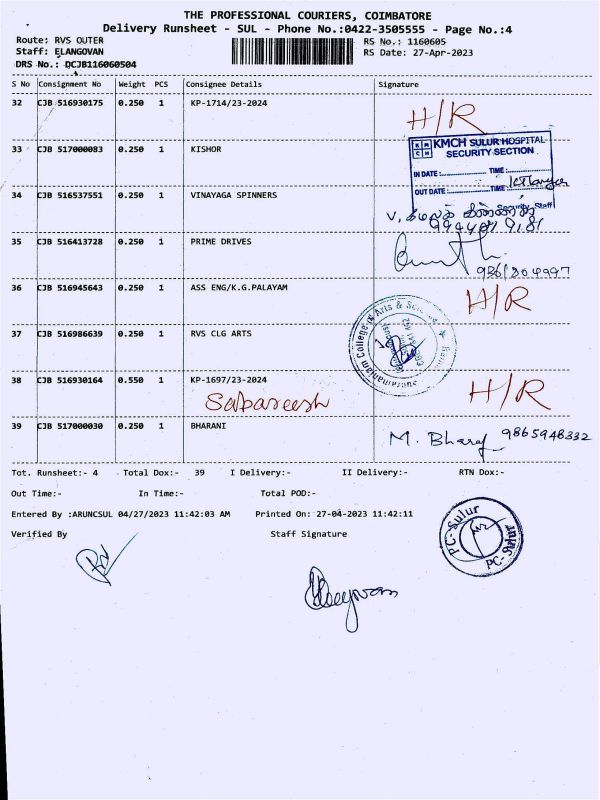 THE PROFESSIONAL COURIERS, COIMBATORE
Delivery Runsheet - SUL - Phone No.:0422-3505555 - Page No.:4
Route: RVS OUTER
RS No.: 1160605
Staff: ELANGOVAN
RS Date: 27-Apr-2023
DRS No.: DCJB116060504
S No Consignment No Weight PCS Consignee Details Signature
32 CJB 516930175 0.250 1 KP-1714/23-2024 H/R
33 CJB 517000083 0.250 1 KISHOR
KMCH SULUR HOSPITAL
SECURITY SECTION
IN DATE: TIME:
OUT DATE: TIME:
Security Staff
34 CJB 516537551 0.250 1 VINAYAGA SPINNERS
35 CJB 516413728 0.250 1 PRIME DRIVES
36 CJB 516945643 0.250 1 ASS ENG/K.G.PALAYAM H/R
37 CJB 516986639 0.250 1 RVS CLG ARTS
38 CJB 516930164 0.550 1 KP-1697/23-2024 H/R
Sabareesh
39 CJB 517000030 0.250 1 BHARANI 9865948332
Tot. Runsheet:- 4 Total Dox:- 39 I Delivery:- II Delivery:- RTN Dox:-
Out Time:- In Time:- Total POD:-
Entered By :ARUNCSUL 04/27/2023 11:42:03 AM Printed On: 27-04-2023 11:42:11
Verified By Staff Signature
PC-Sulur
PC-Sulur